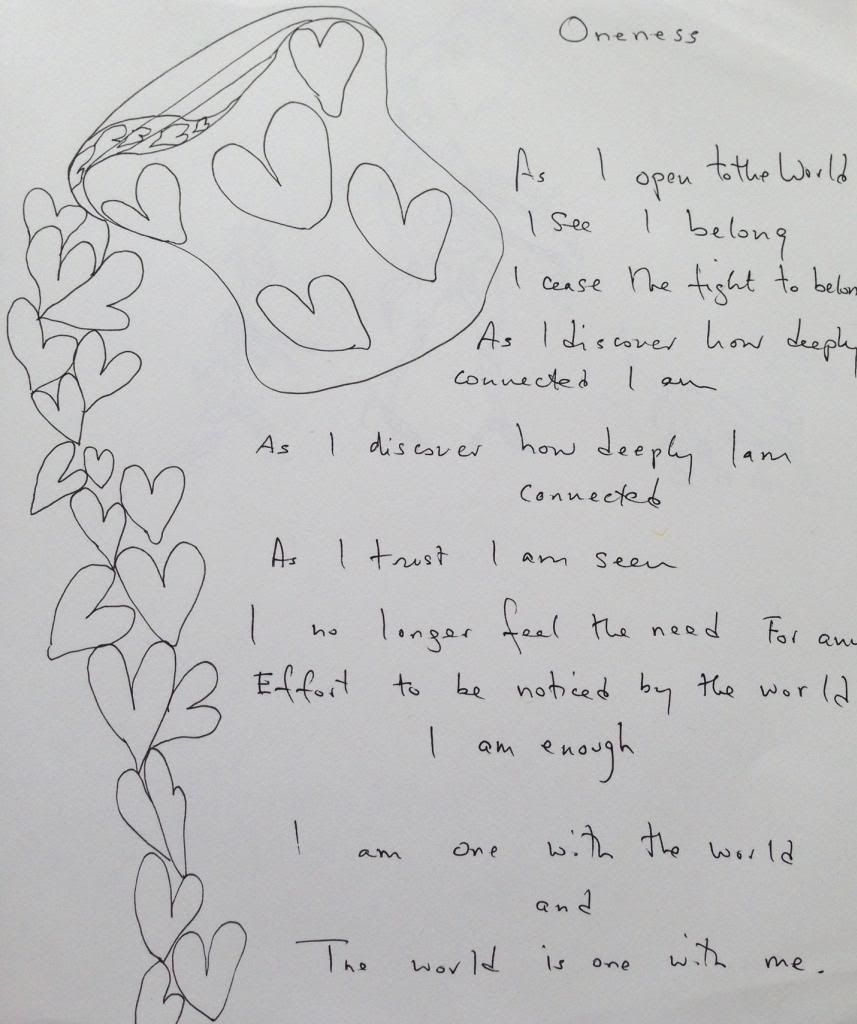 Oneness
As I open to the World
I see I belong
I cease the fight to belon
As I discover how deeply
connected I am
As I discover how deeply I am
connected
As I trust I am seen
I no longer feel the need For an
Effort to be noticed by the world
I am enough
I am one with the world
and
The world is one with me.